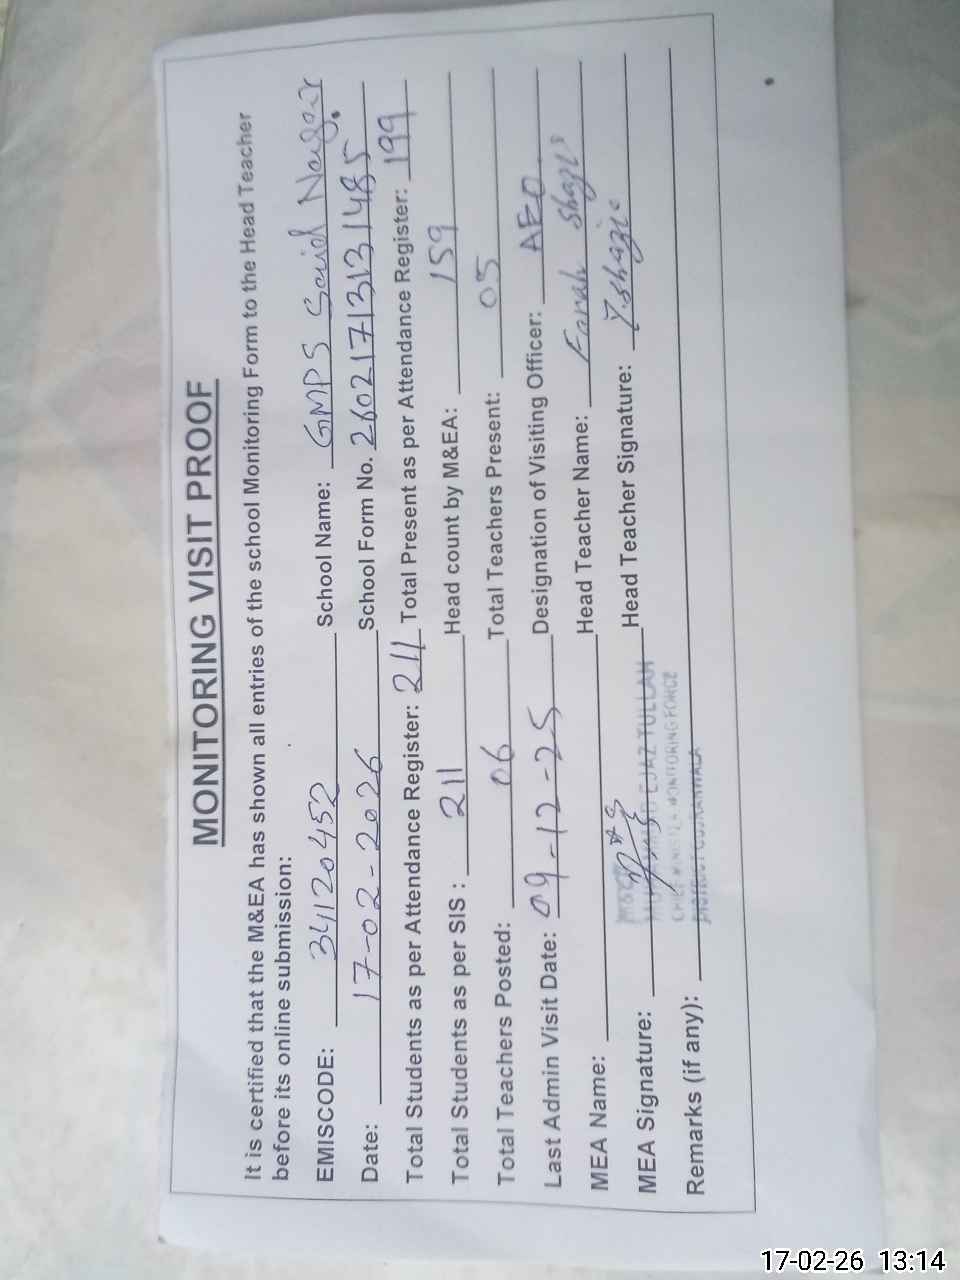 MONITORING VISIT PROOF
It is certified that the M&EA has shown all entries of the school Monitoring Form to the Head Teacher
before its online submission:
EMISCODE: 34120452 School Name: GMPS Said Nagar
Date: 17-02-2026 School Form No. 26021713131485
Total Students as per Attendance Register: 211 Total Present as per Attendance Register: 199
Total Students as per SIS : 211 Head count by M&EA: 159
Total Teachers Posted: 06 Total Teachers Present: 05
Last Admin Visit Date: 09-12-25 Designation of Visiting Officer: AEO
MEA Name: Head Teacher Name: Farah Shazia
MEA Signature: Head Teacher Signature:
EJAZ TULLAH
CHIEF MINISTER MONITORING FORCE
DISTRICT GUJRANWALA
Remarks (if any):
17-02-26 13:14